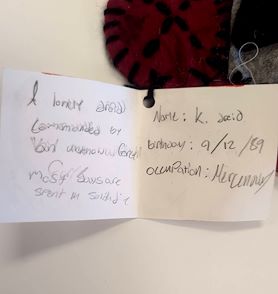 A lonely droid
Commanded by
Void unknown
most days are
spent in solitude
Name: K. droid
birthday: 9/12/89
occupation: Mercenary